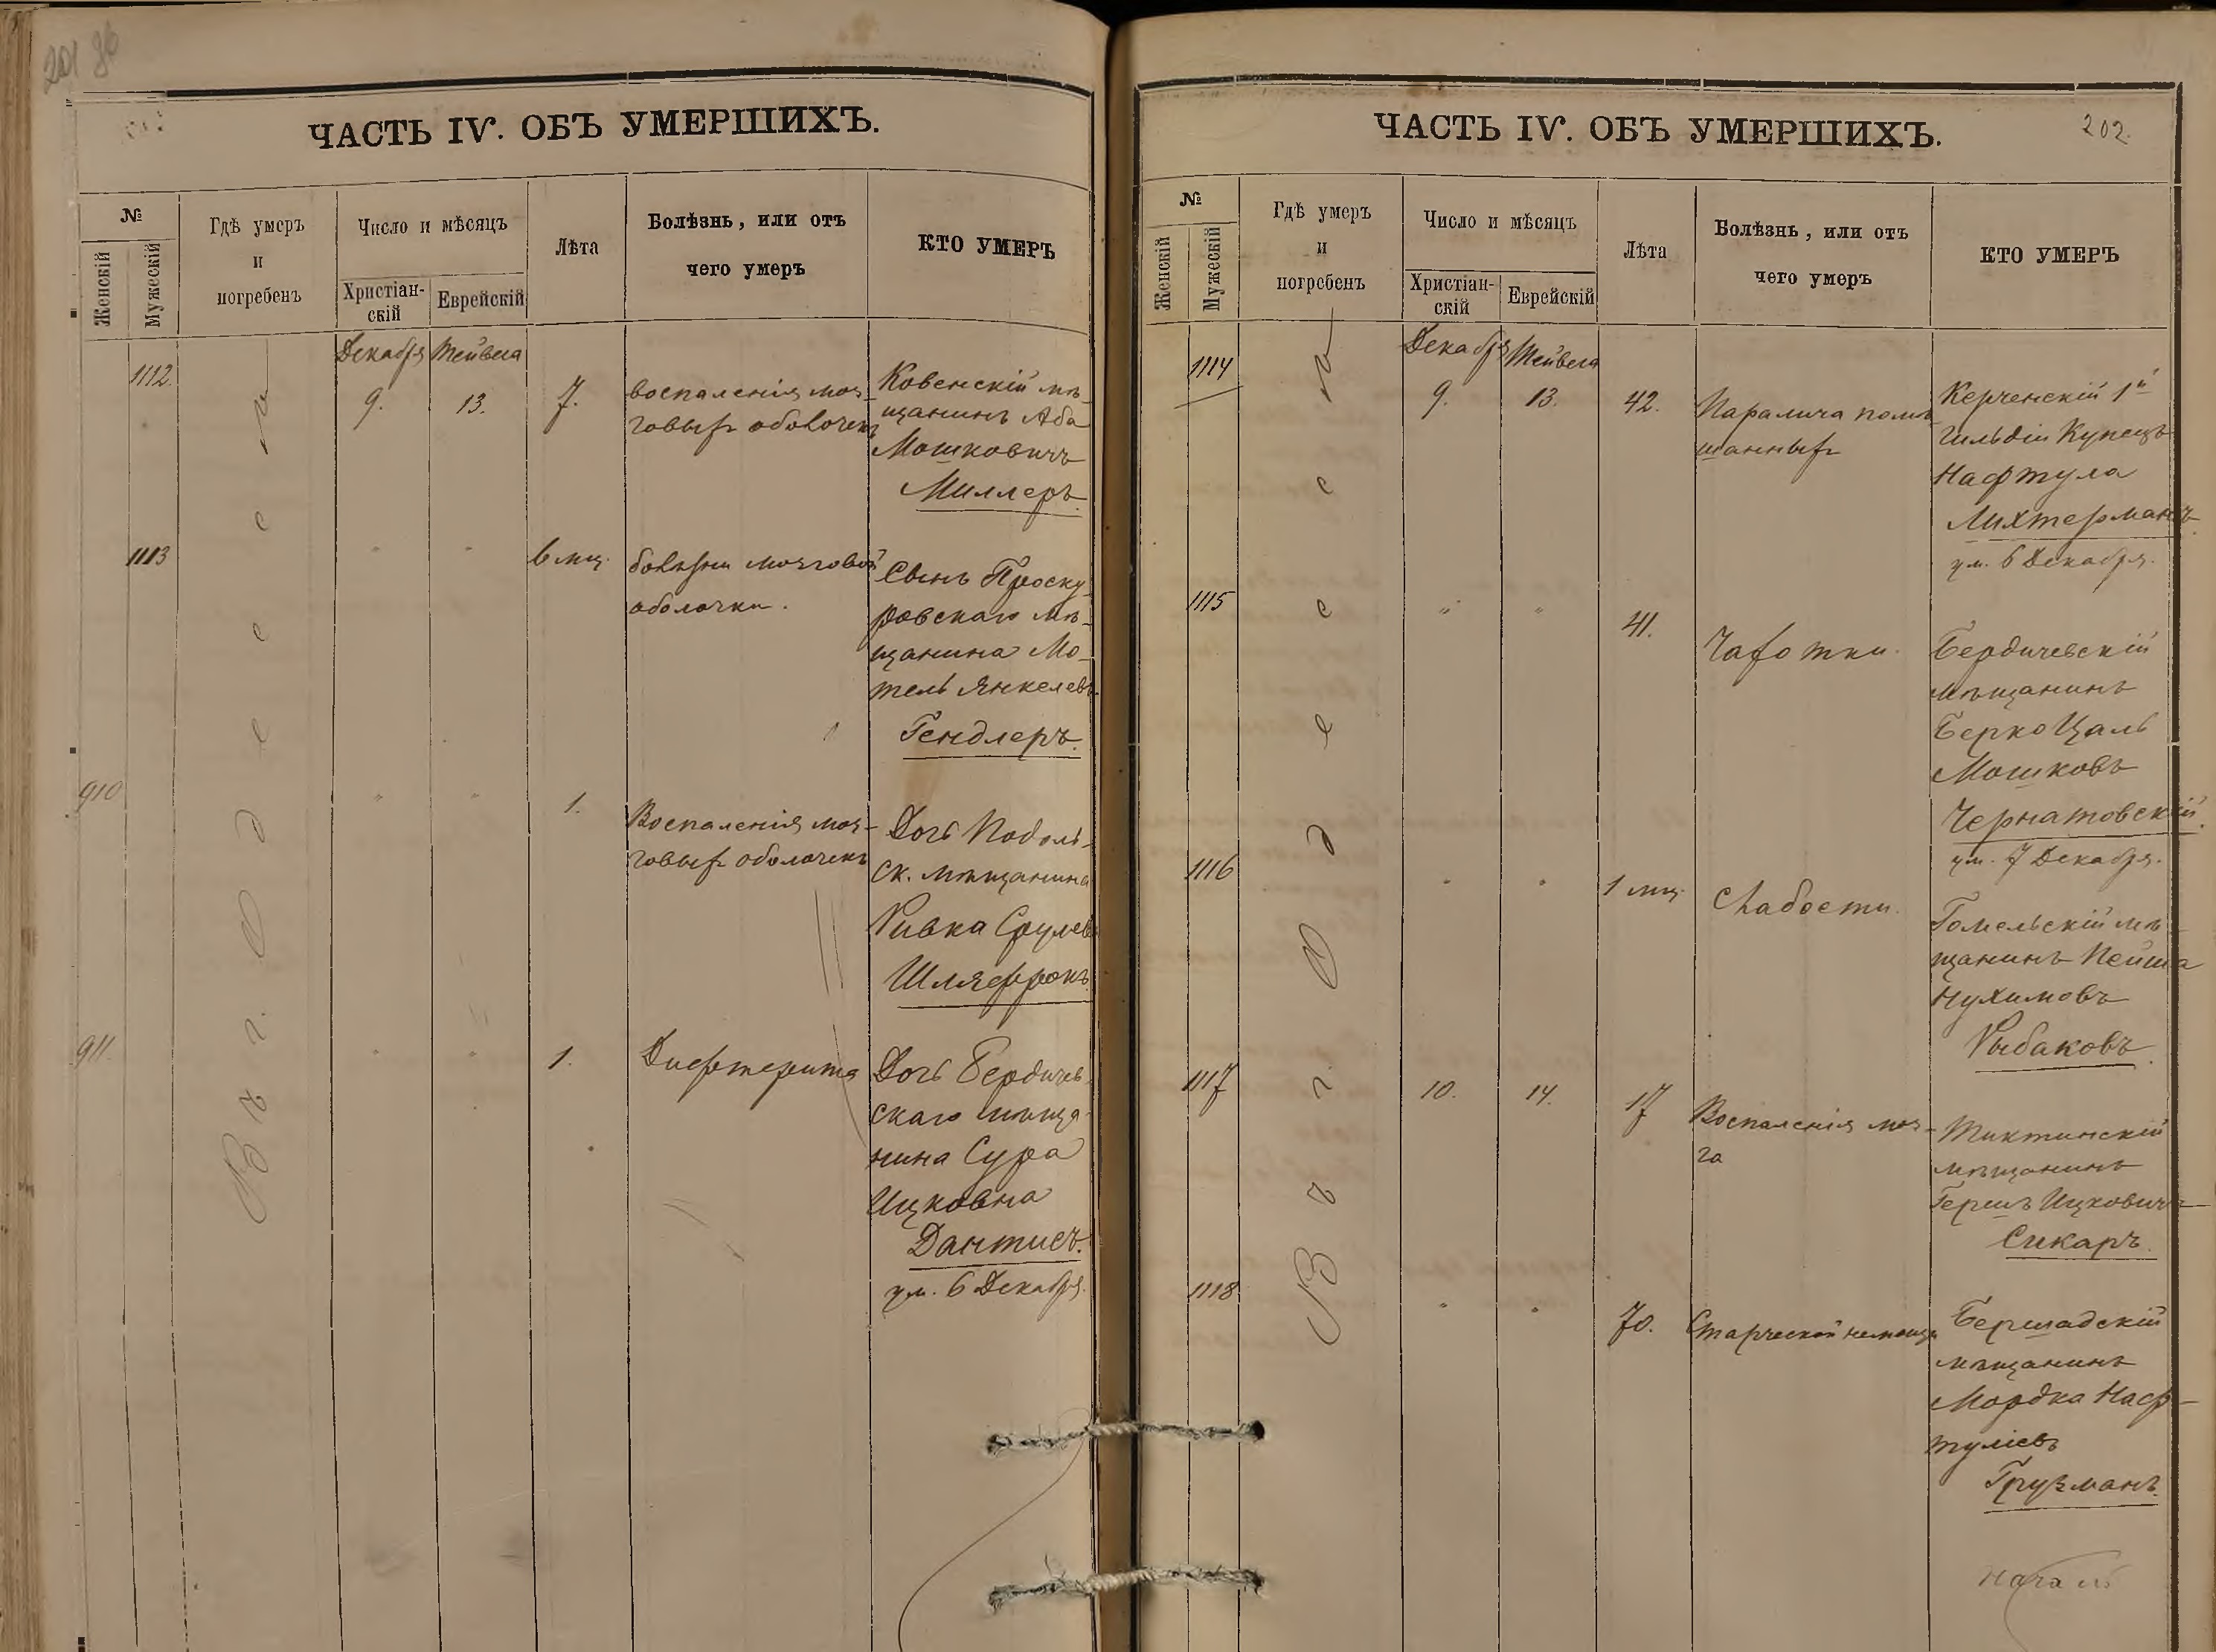 ЧАСТЬ IV. ОБЪ УМЕРШИХЪ.
№
Женскій
Мужескій
Гдѣ умеръ
и
погребенъ
Число и мѣсяцъ
Христіан-
скій
Еврейскій
Лѣта
Болѣзнь, или отъ
чего умеръ
КТО УМЕРЪ
Въ г. Одессѣ
Декабря
Тейвеса
1112.
9.
13.
7.
воспаленія моз-
говыхъ оболочекъ
Ковенскій мѣ-
щанинъ Аба
Мошковичъ
Миллеръ.
1113
"
"
6 мц.
болѣзни мозговой
оболочки.
Сынъ Проску-
ровскаго мѣ-
щанина Мо-
тель Янкелевъ
Гендлеръ.
910
"
"
1.
Воспаленія моз-
говыхъ оболочекъ
Дочь Подоль-
ск. мѣщанина
Ривка Срулев
911.
"
"
1.
Дифтерита
Дочь Бердичев-
скаго мѣща-
нина Сура
Ицковна
Дантисъ.
ум. 6 Декабря.
ЧАСТЬ IV. ОБЪ УМЕРШИХЪ.
202.
№
Женскій
Мужескій
Гдѣ умеръ
и
погребенъ
Число и мѣсяцъ
Христіан-
скій
Еврейскій
Лѣта
Болѣзнь, или отъ
чего умеръ
КТО УМЕРЪ
Въ г. Одессѣ
Декабря
Тейвеса
1114
9.
13.
42.
Паралича помѣ-
шанныхъ
Керченскій 1й
гильдіи Купецъ
Нафтула
Лихтерманъ
ум. 6 Декабря.
1115
"
"
41.
Чахотки.
Бердичевскій
мѣщанинъ
Берко Цаль
Мошковъ
Чернатовскій.
ум. 7 Декабря.
1116
"
"
1 мц.
Слабости.
Гомельскій мѣ-
щанинъ Пейша
Нухимовъ
Рыбаковъ.
1117
10.
14.
17
Воспаленія моз-
га
Тиктинскій
мѣщанинъ
Гершъ Ицковичъ
Сикаръ.
1118
"
"
70.
Старческой немощи
Бершадскій
мѣщанинъ
Мордка Наф-
туліевъ
Грузманъ.